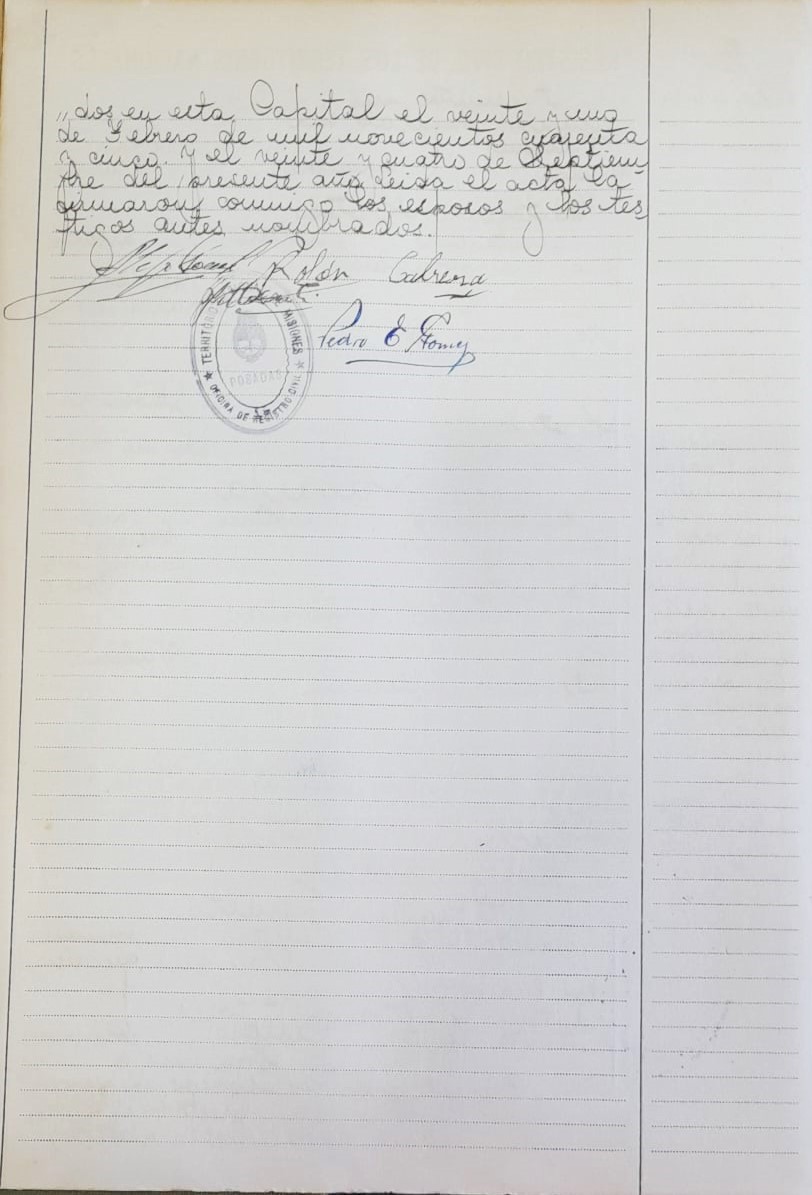 „dos en esta Capital el veinte y uno
de Febrero de mil novecientos cuarenta
y cinco. Y el veinte y cuatro de Septiem
bre del presente año, leida el acta la
firmaron conmigo los esposos y los tes
tigos antes nombrados.
Rolón Cabrera
Pedro E Gomez
TERRITORIO MISIONES
POSADAS
OFICINA DE REGISTRO CIVIL